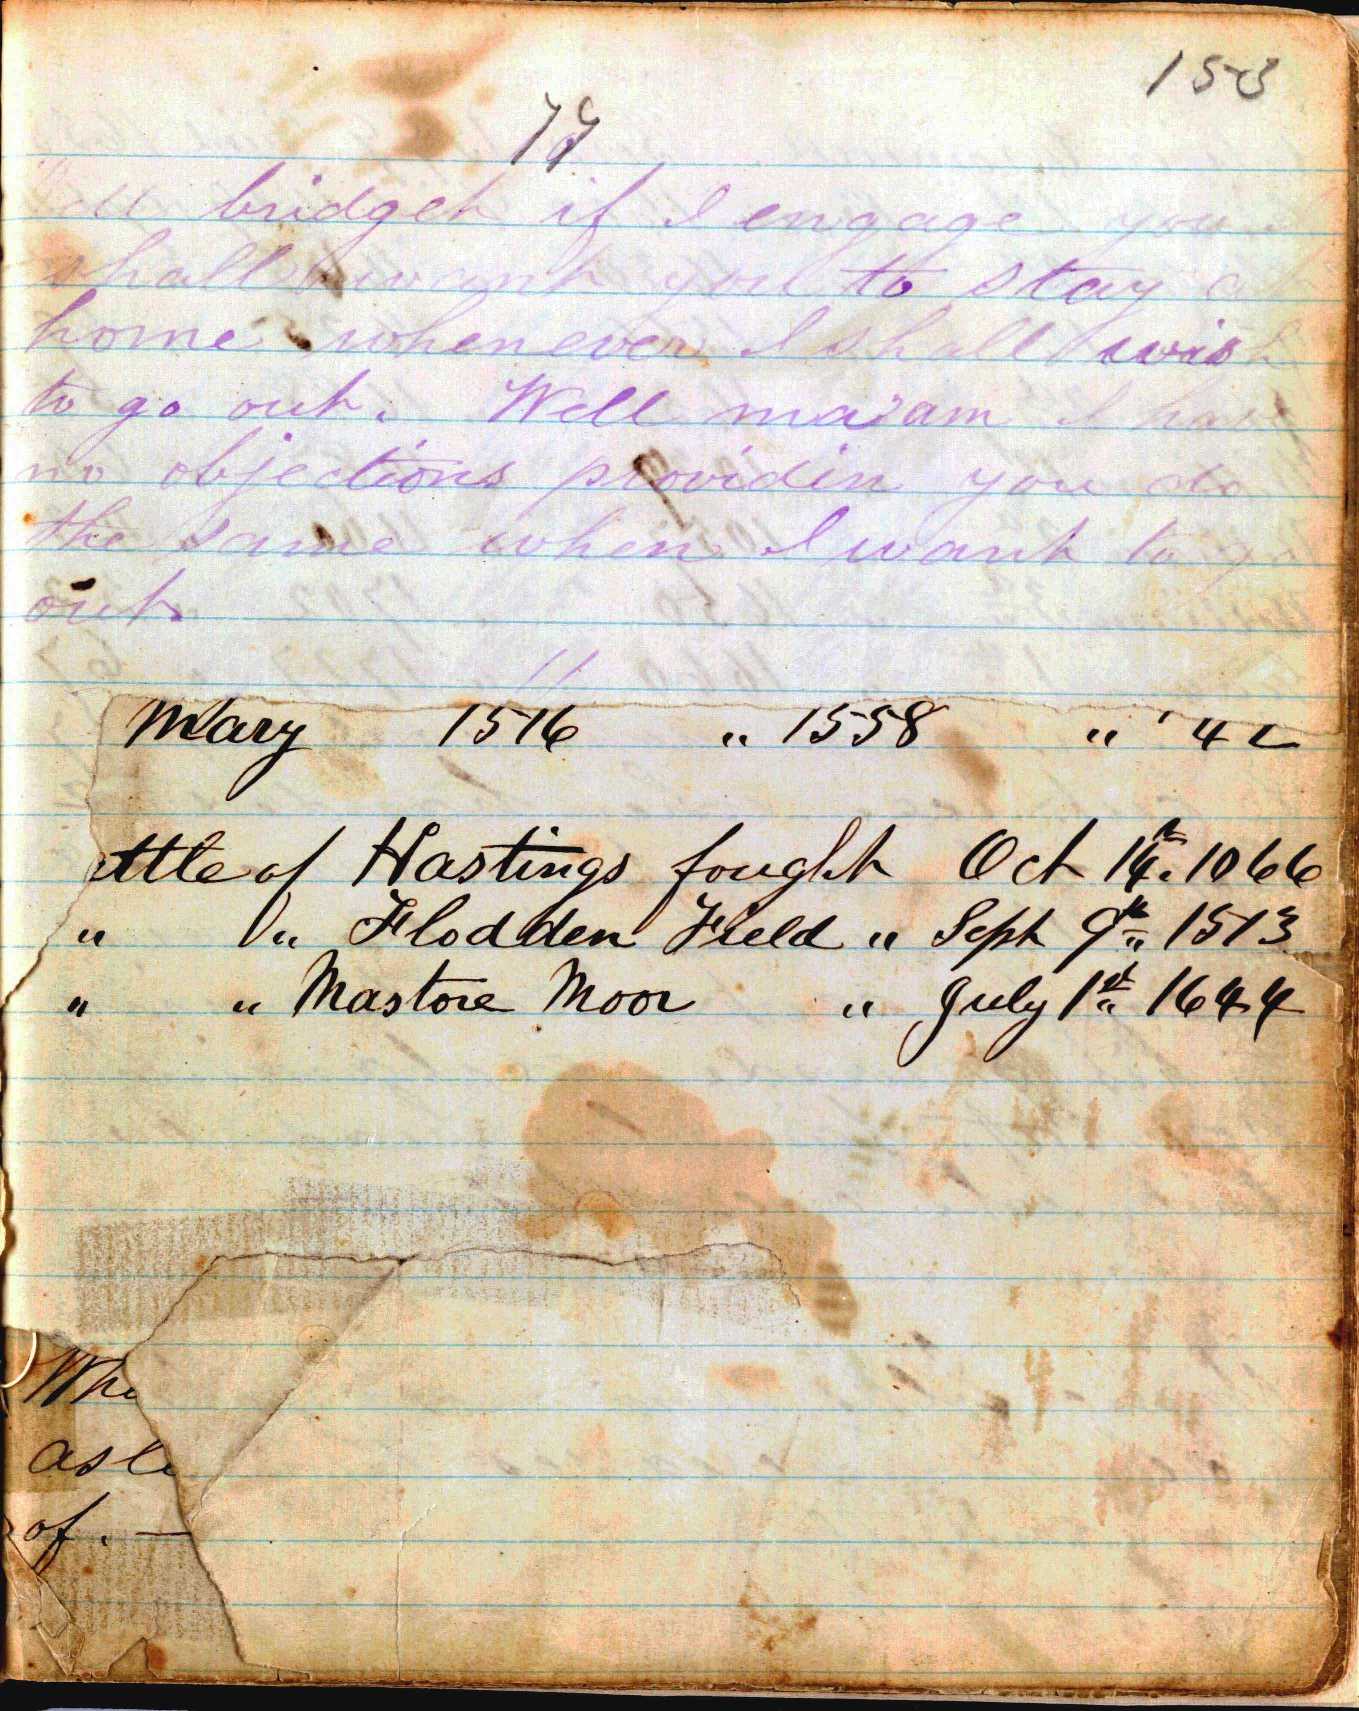 153
77
bridget if I engage you
shall want you to stay at
home whenever I shall wish
to go out. Well ma'am I hav
no objections providin you do
the same when I want to go
out.
"
Mary 1516 " 1558 " 42
ttle of Hastings fought Oct 14th. 1066
" " Flodden Field " Sept 9th 1513
" " Mastore Moor " July 1st 1644
Whe
ask
of. —